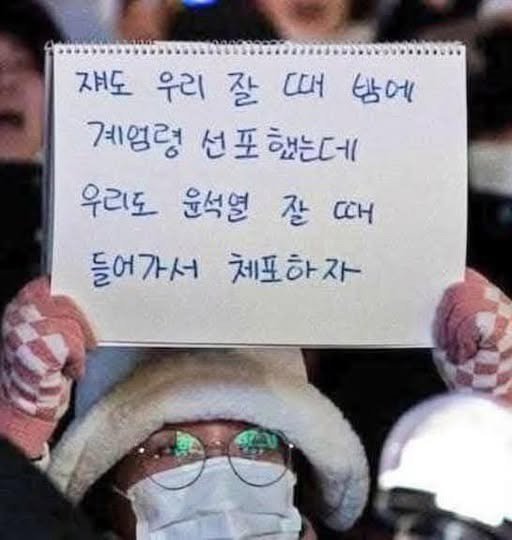 쟤도 우리 잘 때 밤에
계엄령 선포했는데
우리도 윤석열 잘 때
들어가서 체포하자